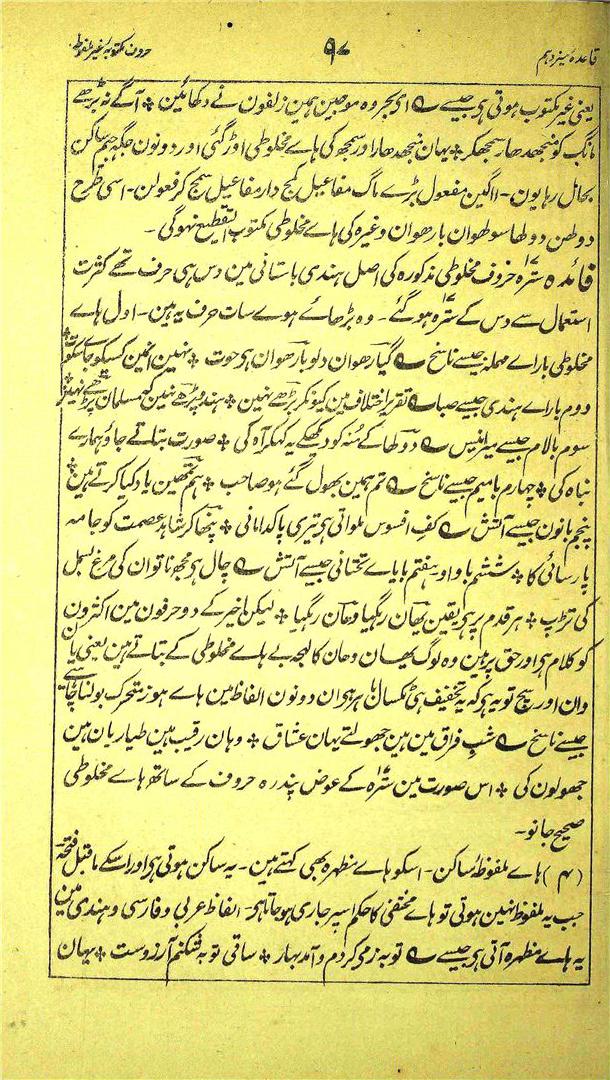 قاعدہ سیزدہم ۹۷ حروف مکتوبہ غیر ملفوظ
یعنی غیر مکتوب ہوتی ہی جیسے ؎ ای بحر وہ موجین ہمن زلفون نے دکھائین ٭ آگے نہ بڑھے
مانگ کو منجھدھار سمجھکر ٭ یہان منجھدھار اور سمجھ کی ہاے مخلوطی اوڑ گئی اور دو نون جگہ جیم ساکن
بحال رہا یون ۔ ااگین مفعول بڑے ماگ مفاعیل کمج دار مفاعیل سمج کر فعولن ۔ اسی طرح
دولھن دولھا سولھوان بارھوان وغیرہ کی ہاے مخلوطی مکتوب التقطیع نہوگی ۔
فائدہ سترہ ۱۷ حروف مخلوطی مذکورہ کی اصل ہندی باستانی مین دس ہی حرف تھے کثرت
استعمال سے دس کے سترہ ۱۷ ہو گئے ۔ وہ بڑھاے ہوے سات حرف یہ ہین ۔ اول ہاے
مخلوطی بارے مہملہ جیسے ناسخ ؎ گیارھوان دلو بارھوان ہی حوت ٭ نہین انمین کسیکو جاے سکوت
دوم باراے ہندی جیسے صبا ؎ تقریر اختلاف مین کیونکر بڑھے نہین ٭ ہندو پڑھے نہین کہ مسلمان پڑھے نہین
سوم بالام جیسے میر انیس ؎ دولھا کے منہ کو دیکھکے یہ کہکر آہ کی ٭ صورت بتاتے جاؤ ہمارے
نباہ کی ٭ چہارم بامیم جیسے ناسخ ؎ تم ہمین بھول گئے ہو صاحب ٭ ہم تمھین یاد کیا کرتے ہین
پنجم بانون جیسے آتش ؎ کف افسوس ملواتی ہی تیری پاکدامانی ٭ پنھا کر شاہد عصمت کو جامہ
پارسائی کا ٭ ششم باواو ہفتم بایاے تحتانی جیسے آتش ؎ چال ہی مجھ ناتوان کی مرغ بسمل
کی تڑپ ٭ ہر قدم پر ہی یقین یھان رہگیا وھان رہگیا ٭ لیکن اخیر کے دو حرفون مین اکثرون
کو کلام ہی اور حق پر ہین وہ لوگ یھان وھان کا لہجہ بے ہاے مخلوطی کے بتاتے ہین یعنی یان
وان اور سچ تو یہ ہی کہ یہ تخفیف ہی ٹکسال باہر ہی ان دونون الفاظ مین ہاے ہوز متحرک بولنا چاہیے
جیسے ناسخ ؎ شب فراق مین ہین جھولتے یہان عشاق ٭ وہان رقیب ہین طیاریان ہین
جھولون کی ٭ اس صورت مین سترہ ۱۷ کے عوض پندرہ حروف کے ساتھ ہاے مخلوطی
صحیح جانو ۔
(۴) ہاے ملفوظ ساکن ۔ اسکو ہاے مظہرہ بھی کہتے ہین ۔ یہ ساکن ہوتی ہی اور اسکے ماقبل فتحہ
جب یہ ملفوظ نہین ہوتی تو ہاے مختفی کا حکم اسپر جاری ہو جاتا ہی ۔ الفاظ عربی و فارسی و ہندی مین
یہ ہاے مظہرہ آتی ہی جیسے ؎ توبہ زمی کردم و آمد بہار ٭ ساقی توبہ شکنم آرزوست ٭ یہان